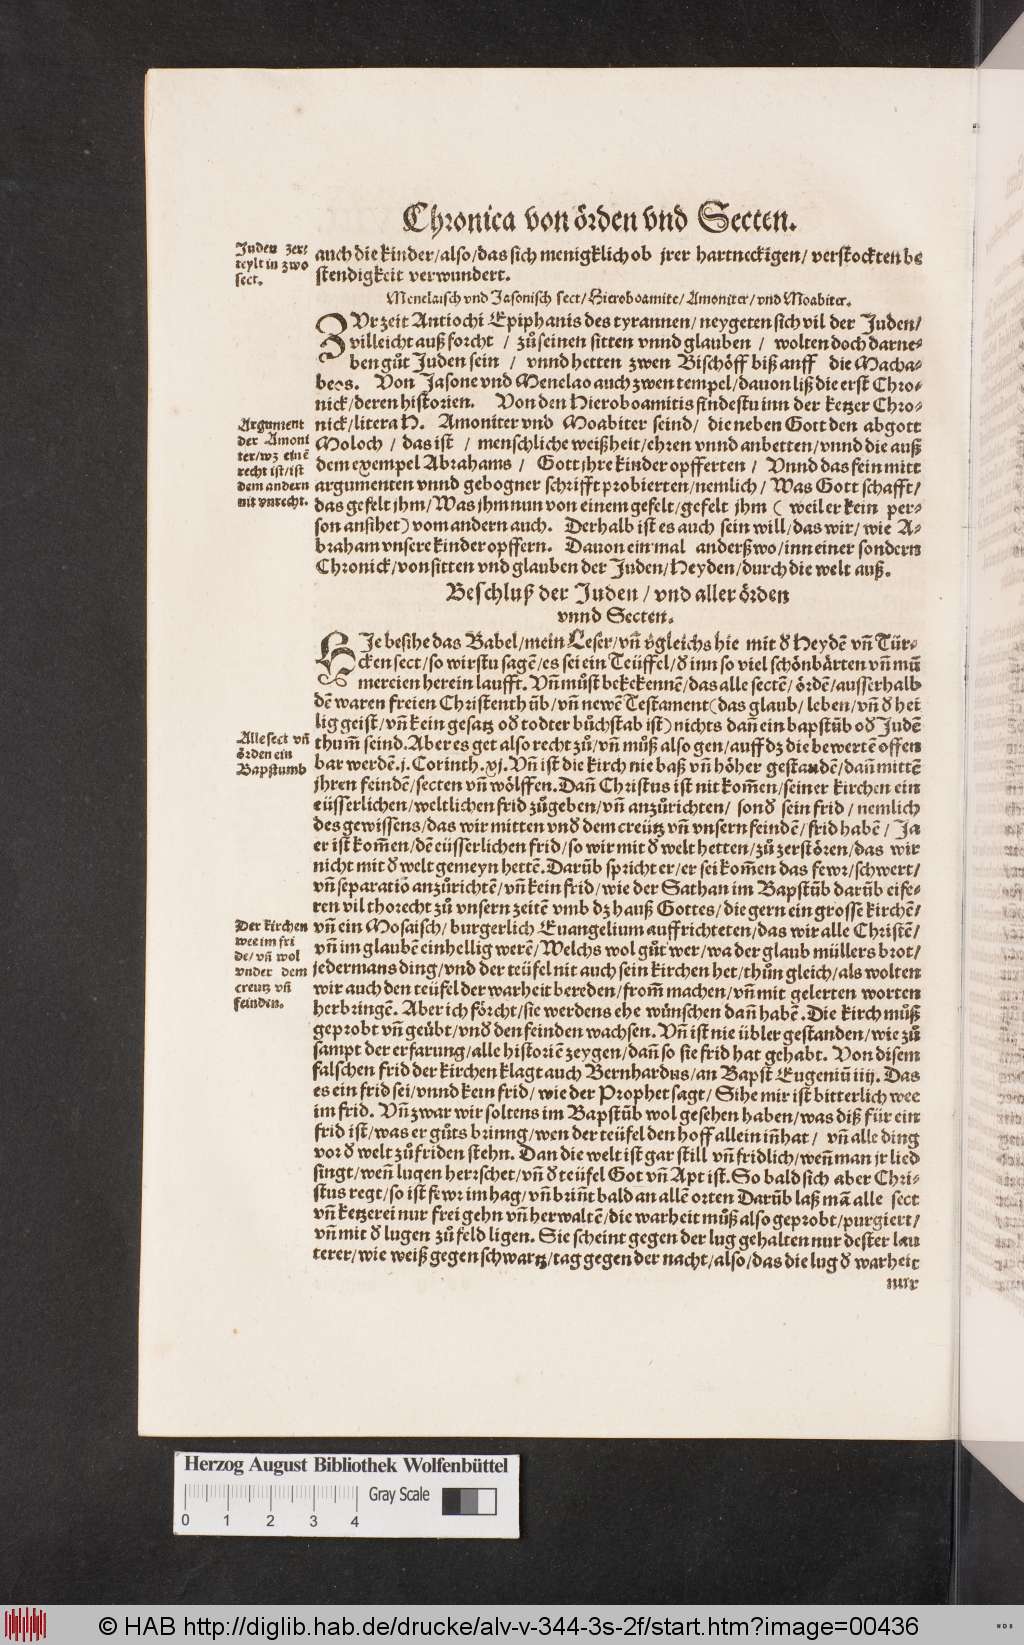 Chronica von örden vnd Secten.
Juden zer⸗
teylt in zwo
sect.
auch die kinder/also/das sich menigklich ob jrer hartneckigen/verstockten be
stendigkeit verwundert.
Menelaisch vnd Jasonisch sect/Hieroboamite/Amoniter/vnd Moabiter.
ZVr zeit Antiochi Epiphanis des tyrannen/neygeten sich vil der Juden/
villeicht auß forcht / zůseinen sitten vnnd glauben / wolten doch darne⸗
ben gůt Juden sein / vnnd hetten zwen Bischöff biß auff die Macha⸗
beos. Von Jasone vnd Menelao auch zwen tempel/dauon liß die erst Chro⸗
nick/deren historien. Von den Hieroboamitis findestu inn der ketzer Chro⸗
nick/litera H. Amoniter vnd Moabiter seind/die neben Gott den abgott
Moloch / das ist / menschliche weißheit/ehren vnnd anbetten/vnnd die auß
dem exempel Abrahams / Gott jhre kinder opfferten / Vnnd das fein mitt
argumenten vnnd gebogner schrifft probierten/nemlich/Was Gott schafft/
das gefelt jhm/Was jhm nun von einem gefelt/gefelt jhm ( weil er kein per⸗
son ansihet) vom andern auch. Derhalb ist es auch sein will/das wir/wie A⸗
braham vnsere kinder opffern. Dauon ein mal anderßwo/inn einer sondern
Chronick/von sitten vnd glauben der Juden/Heyden/durch die welt auß.
Argument
der Amoni
ter/wz einē
recht ist/ist
dem andern
nit vnrecht.
Beschluß der Juden/vnd aller örden
vnnd Secten.
HJe besihe das Babel/mein Leser/vñ v̄gleichs hie mit đ Heydē vñ Tür⸗
cken sect/so wirstu sagē/es sei ein Teüffel/đ inn so viel schönbärten vñ mū
mereien herein laufft. Vñ můst bekekennē/das alle sectē/ördē/ausserhalb
dē waren freien Christenthūb/vñ newē Testament(das glaub/leben/vñ đ hei
lig geist/vñ kein gesatz ođ todter bůchstab ist)nichts dañ ein bapstūb ođ Judē
thum̄ seind. Aber es get also recht zů/vñ můß also gen/auff dz die bewertē offen
bar werdē.j.Corinth.xj. Vñ ist die kirch nie baß vñ höher gestandē/dañ mittē
jhren feindē/secten vñ wölffen. Dañ Christus ist nit kom̄en/seiner kirchen ein
eüsserlichen/weltlichen frid zůgeben/vñ anzůrichten/ sonđ sein frid/nemlich
des gewissens/das wir mitten vnđ dem creütz vñ vnsern feindē/frid habē/ Ja
er ist kom̄en/dē eüsserlichen frid/so wir mit đ welt hetten/zů zerstören/das wir
nicht mit đ welt gemeyn hettē. Darūb spricht er/er sei kom̄en das fewr/schwert/
vñ separatiō anzůrichtē/vñ kein frid/wie der Sathan im Bapstūb darūb eife⸗
ren vil thorecht zů vnsern zeitē vmb dz hauß Gottes/die gern ein grosse kirchē/
vñ ein Mosaisch/burgerlich Euangelium auffrichteten/das wir alle Christē/
vñ im glaubē einhellig werē/Welchs wol gůt wer/wa der glaub müllers brot/
jedermans ding/vnd der teüfel nit auch sein kirchen het/thůn gleich/als wolten
wir auch den teüfel der warheit bereden/from̄ machen/vñ mit gelerten worten
herbringē. Aber ich förcht/sie werdens ehe wünschen dañ habē. Die kirch můß
geprobt vñ geübt/vnđ den feinden wachsen. Vñ ist nie übler gestanden/wie zů
sampt der erfarung/alle historiē zeygen/dañ so sie frid hat gehabt. Von disem
falschen frid der kirchen klagt auch Bernhardus/an Bapst Eugeniū iiij. Das
es ein frid sei/vnnd kein frid/wie der Prophet sagt/Sihe mir ist bitterlich wee
im frid. Vñ zwar wir soltens im Bapstūb wol gesehen haben/was diß für ein
frid ist/was er gůts brinng/wen der teüfel den hoff allein iñhat/ vñ alle ding
vor đ welt zůfriden stehn. Dan die welt ist gar still vñ fridlich/weñ man jr lied
singt/weñ lugen herrschet/vñ đ teüfel Got vñ Apt ist. So bald sich aber Chri⸗
stus regt/so ist fewr im hag/vñ briñt bald an allē orten Darūb laß mā alle sect
vñ ketzerei nur frei gehn vñ herwaltē/die warheit můß also geprobt/purgiert/
vñ mit đ lugen zů feld ligen. Sie scheint gegen der lug gehalten nur dester lau
terer/wie weiß gegen schwartz/tag gegen der nacht/also/das die lug đ warheit
nur
Alle sect vñ
örden ein
Bapstumb
Der kirchen
wee im fri
de/vñ wol
vnder dem
creutz vñ
feinden.
Herzog August Bibliothek Wolfenbüttel
Gray Scale
0 1 2 3 4
© HAB http://diglib.hab.de/drucke/alv-v-344-3s-2f/start.htm?image=00436